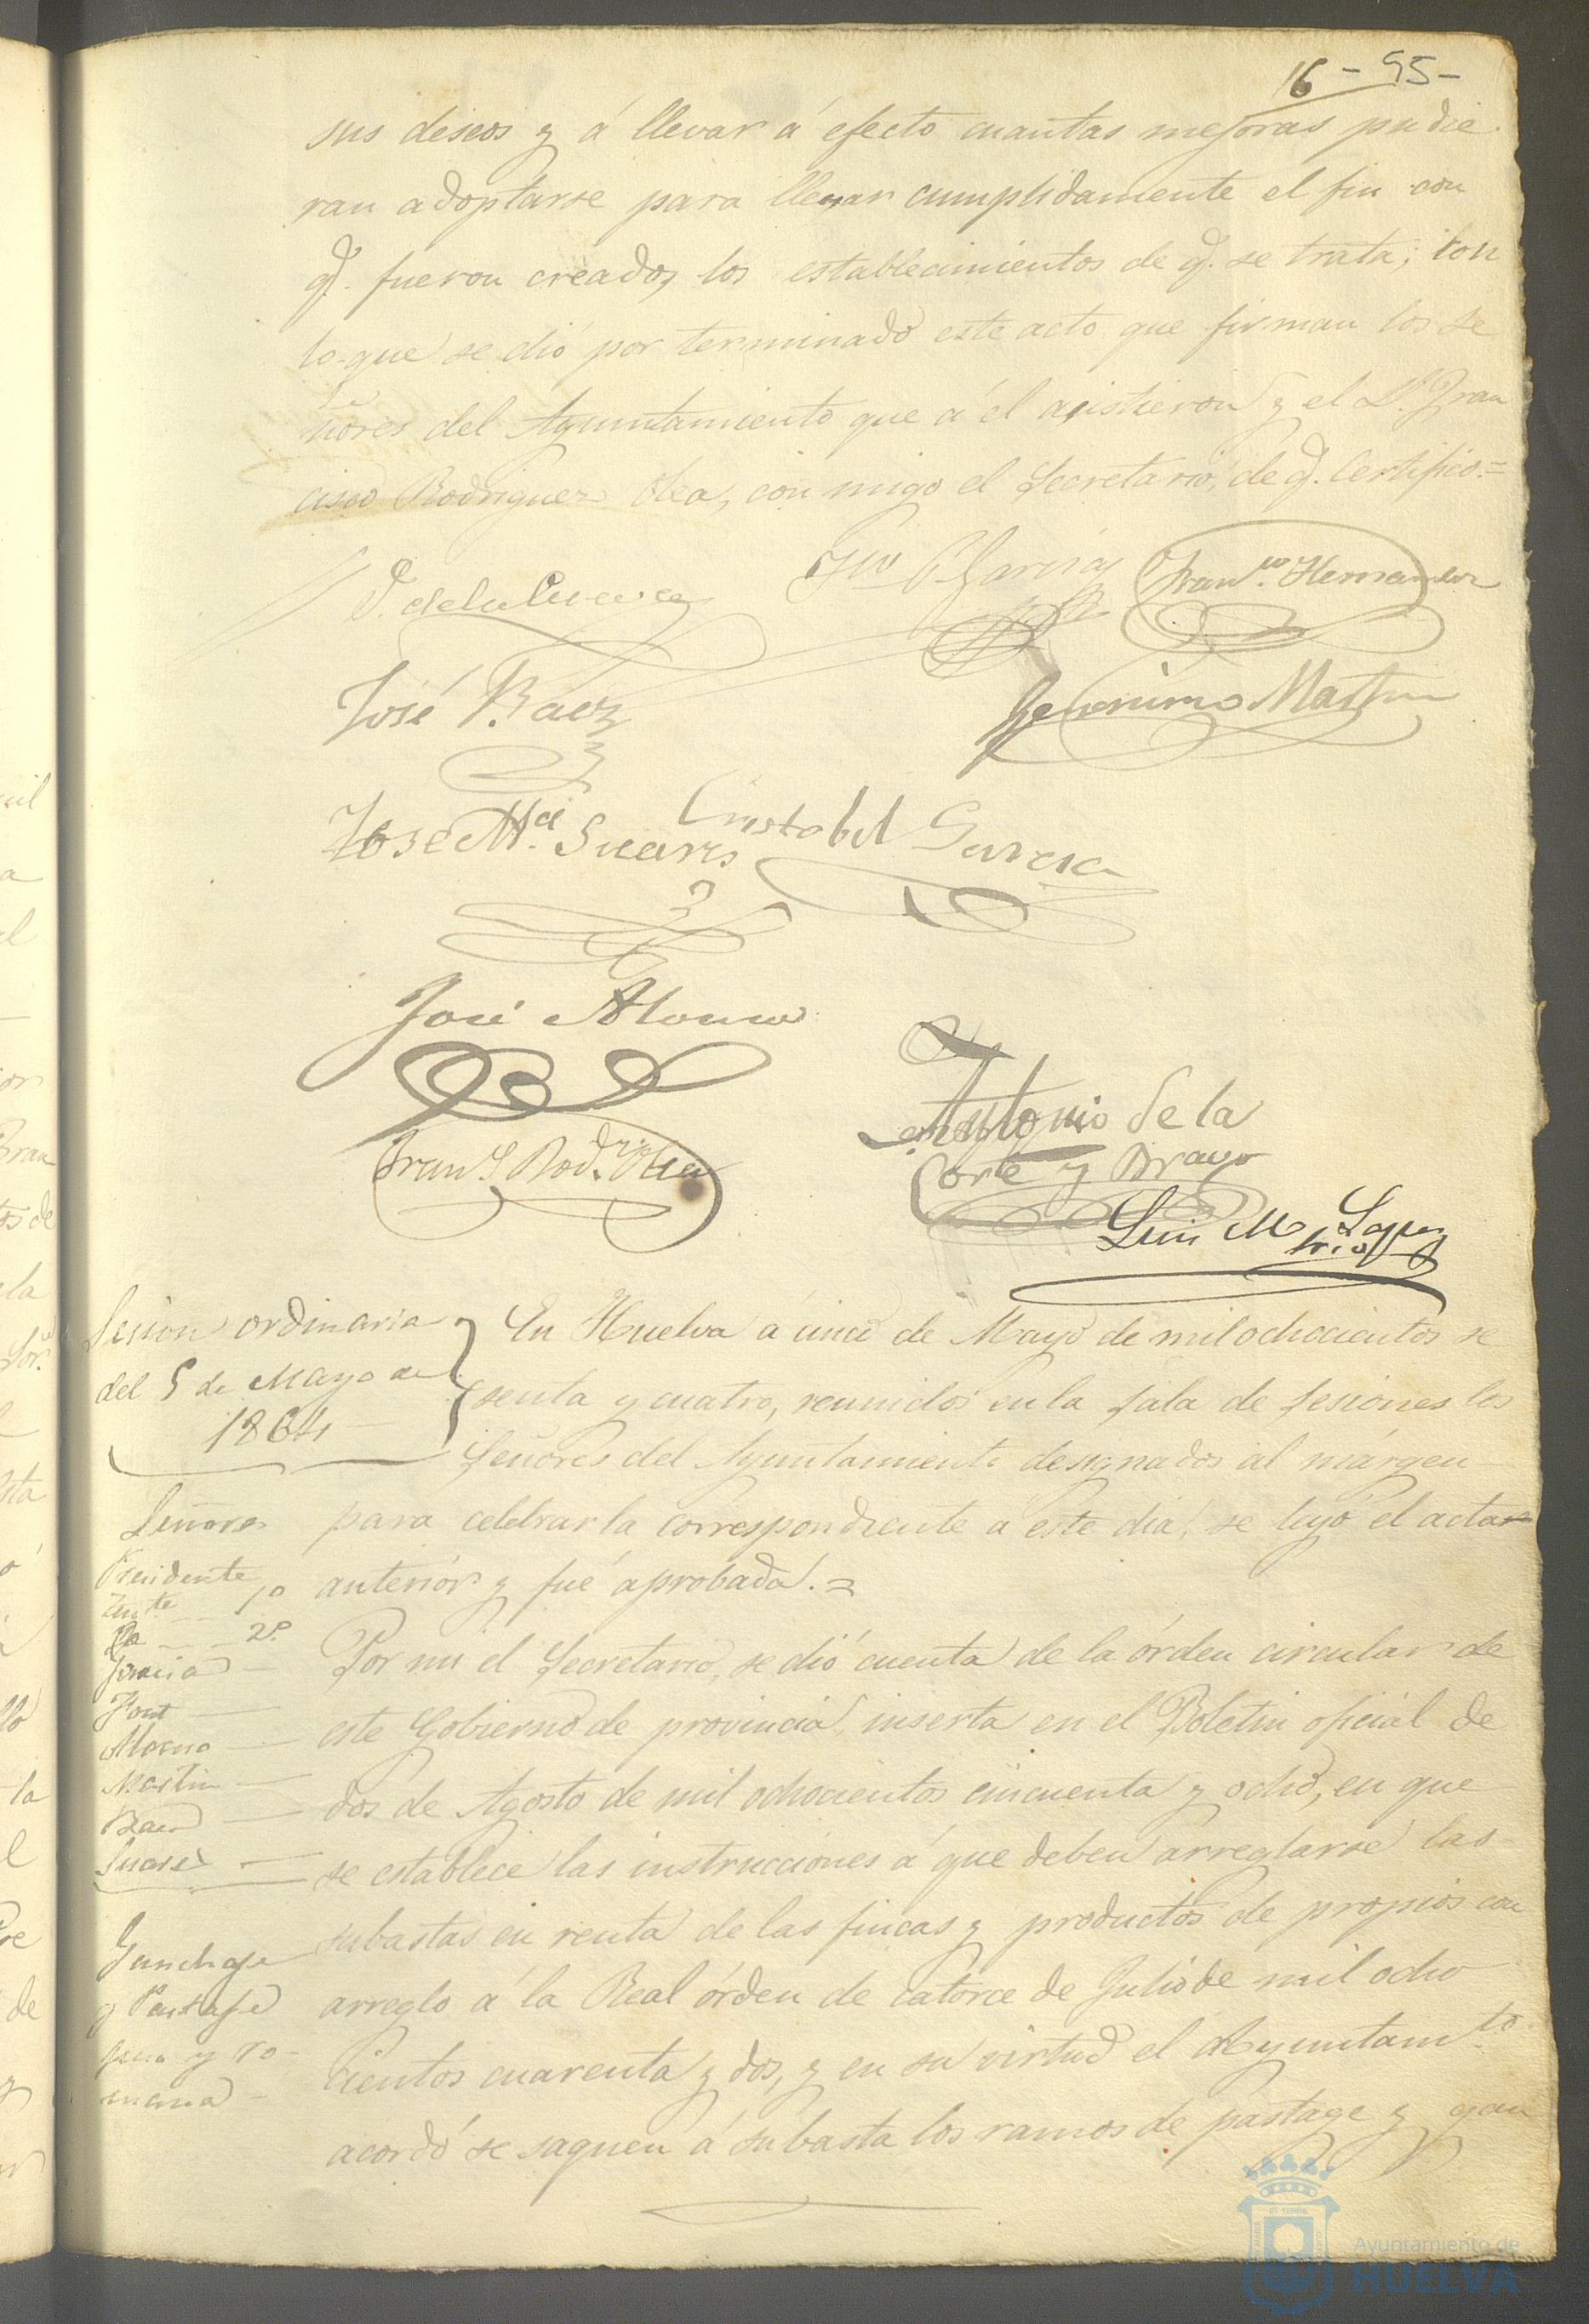 16 - 95 -
sus deseos y á llevar á efecto cuantas mejoras pudie
ran adoptarse para llenar cumplidamente el fin con
q. fueron creados los establecimientos de q. se trata; con
lo que se dió por terminado este acto que firman los Se
ñores del Ayuntamiento que á él asistieron y el D. Fran
cisco Rodriguez Olea, con migo el Secretario, de q. Certifico.=
P. de la Cueva
Garcia
Fran.co Hernandez
José Baez
Geronimo Martin
José M.a Suares
Cristobal Garcia
José Alonso
Antonio de la
Corte y Bravo
Fran.co Rod.z Olea
Luis M. Lopez
Srio
Sesion ordinaria
del 5 de Mayo de
1864
En Huelva á cinco de Mayo de mil ochocientos se
senta y cuatro, reunidos en la Sala de Sesiones los
Señores del Ayuntamiento designados al márgen
para celebrar la correspondiente á este dia, se leyó el acta
anteriór y fué aprobada.=
Señores
Presidente
Tente 1º
2º
Garcia
Font
Alonso
Martin
Baez
Suares
Por mi el Secretario, se dió cuenta de la órden circular de
este Gobierno de provincia, inserta en el Boletin oficial de
dos de Agosto de mil ochocientos cincuenta y ocho, en que
se establece las instrucciones á que deben arreglarse las
subastas en renta de las fincas y productos de propios con
arreglo á la Real órden de catorce de Julio de mil ocho
cientos cuarenta y dos, y en su virtud el Ayuntam.to
acordó se saquen á subasta los ramos de pastage y gan
Gunchage
y Pastage
y ro
mana
Ayuntamiento de
HUELVA